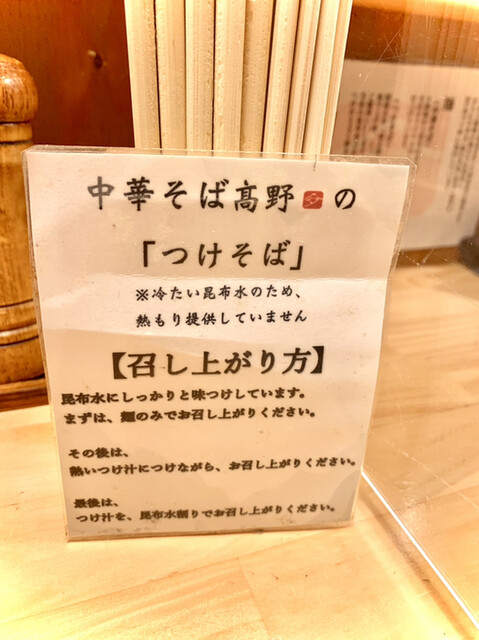 中華そば髙野の
「つけそば」
※冷たい昆布水のため、
熱もり提供していません
【召し上がり方】
昆布水にしっかりと味つけしています。
まずは、麺のみでお召し上がりください。
その後は、
熱いつけ汁につけながら、お召し上がりください。
最後は、
つけ汁を、昆布水割りでお召し上がりください。